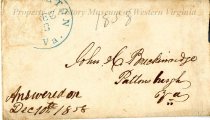 Property of History Museum of Western Virginia
1858
Va.
John C Breckinridge
Va
Answered on
Dec 10th 1858